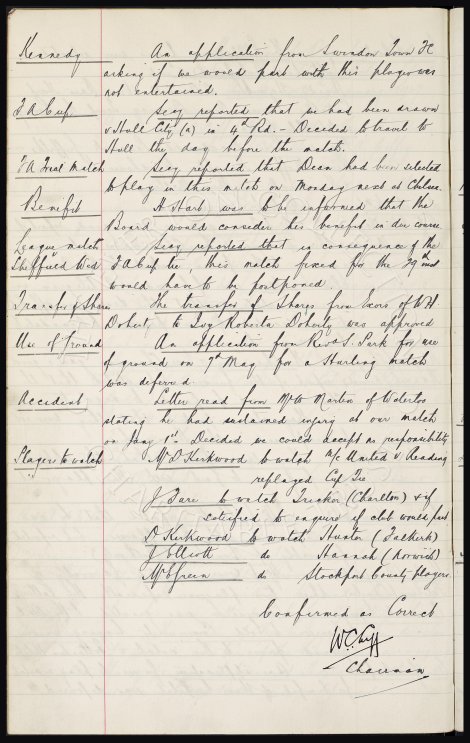 Kennedy An application from Swindon Town FC
asking if we would part with this player was
not entertained.
F A Cup. Secy reported that we had been drawn
v Hull City (a) in 4th Rd. - Decided to travel to
Hull the day before the match.
FA Trial Match Secy reported that Dean had been selected
to play in this match on Monday next at Chelsea.
Benefit H Hart was to be informed that the
Board would consider his benefit in due course.
League match Secy reported that in consequence of the
Sheffield Wed FA Cup tie, this match fixed for the 29th inst
would have to be postponed.
Transfer of Shares The transfer of Shares from Exors of W H
to Ivy Roberta Doherty was approved
Use of Ground An application from Revd S. Park for use
of ground on 7th May for a Hurling match
was deferred.
Accident Letter read from Mr W Martin of Waterloo
stating he had sustained injury at our match
on Jany 1st. Decided we could accept no responsibility
Players to watch Mr D Kirkwood to watch M/c United v Reading
replayed Cup Tie
J Fare to watch Tricker (Charlton) & if
satisfied to enquire if club would part
D Kirkwood to watch Hunter (Falkirk)
J Elliott do Hannah (Norwich)
Mr E Green do Stockport County players.
Confirmed as Correct
W.C. Cuff
Chairman